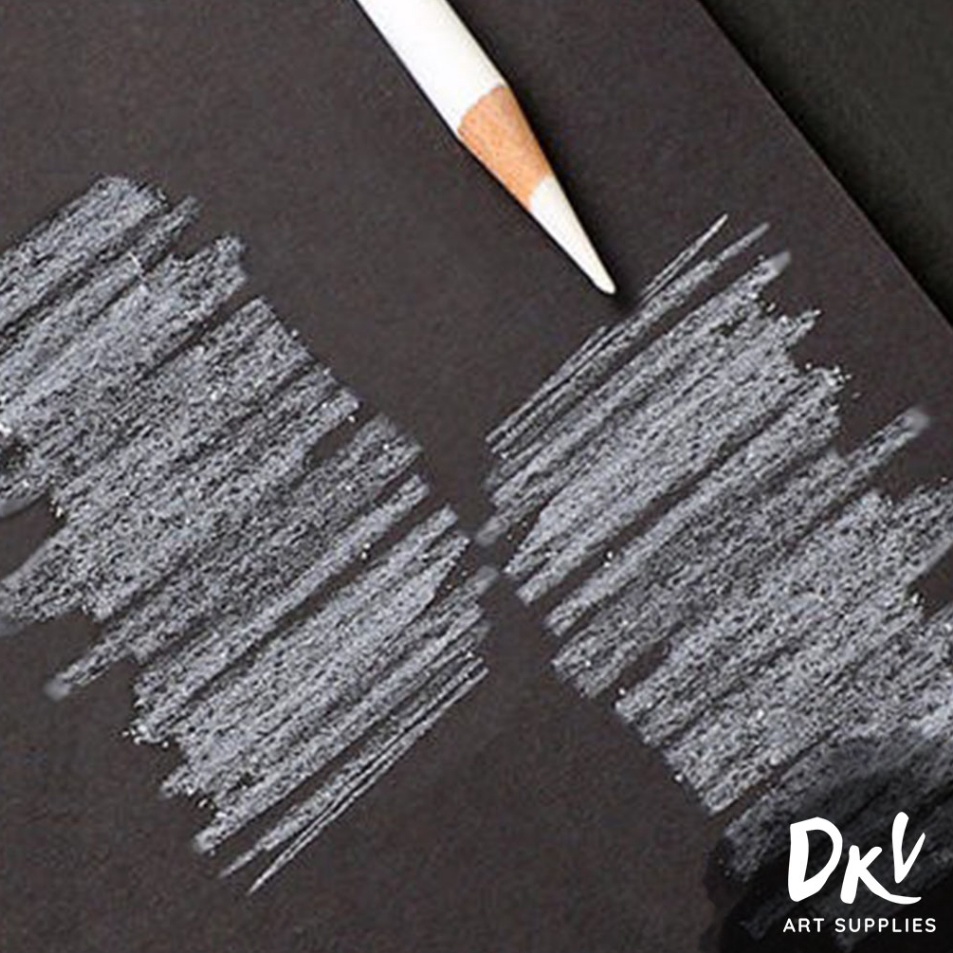 DKV
ART SUPPLIES